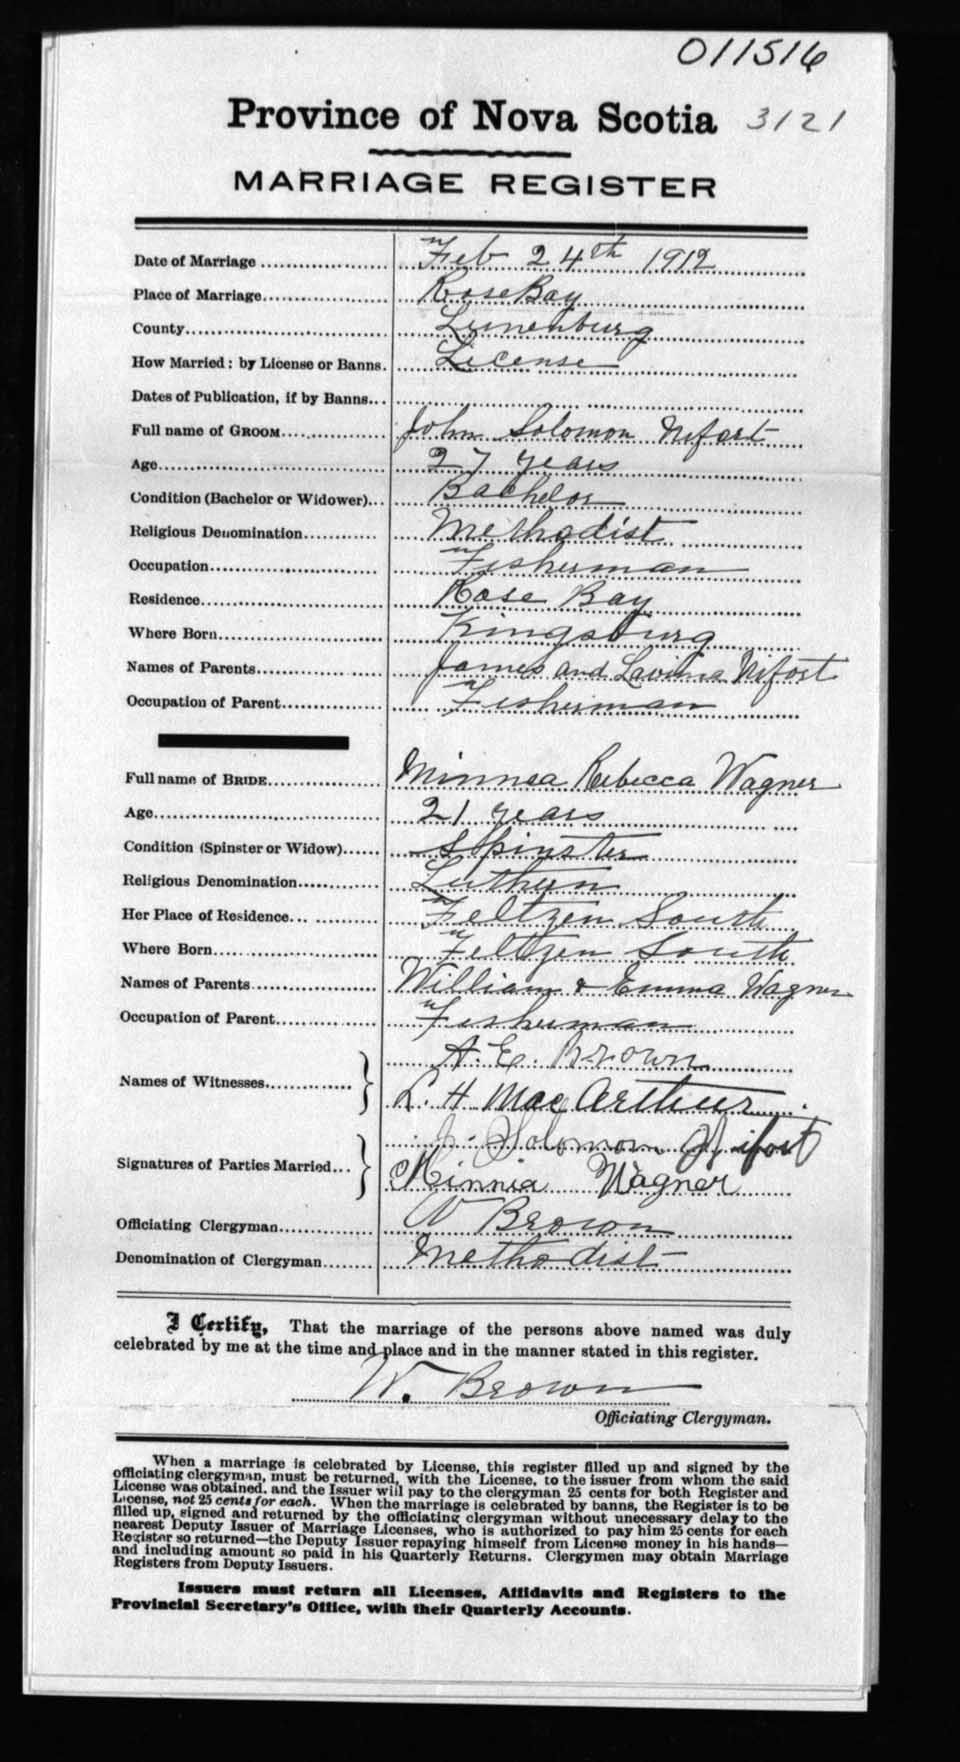 011516
Province of Nova Scotia 3121
MARRIAGE REGISTER
Date of Marriage Feb 24th 1912
Place of Marriage Rose Bay
County Lunenburg
How Married: by License or Banns. License
Dates of Publication, if by Banns
Full name of GROOM John Solomon Nifort
Age 27 years
Condition (Bachelor or Widower) Bachelor
Religious Denomination Methodist
Occupation Fisherman
Residence Rose Bay
Where Born Kingsburg
Names of Parents James and Lavinia Nifort
Occupation of Parent Fisherman
Full name of BRIDE Minnea Rebecca Wagner
Age 21 years
Condition (Spinster or Widow) Spinster
Religious Denomination Luthern
Her Place of Residence Feltzen South
Where Born Feltzen South
Names of Parents William & Emma Wagner
Occupation of Parent Fisherman
A. E. Brown
Names of Witnesses
L. H. MacArthur
J. Solomon Nifort
Signatures of Parties Married
Minnia Wagner
Officiating Clergyman W Brown
Denomination of Clergyman Methodist
I Certify, That the marriage of the persons above named was duly
celebrated by me at the time and place and in the manner stated in this register.
W. Brown
Officiating Clergyman.
When a marriage is celebrated by License, this register filled up and signed by the
officiating clergyman, must be returned, with the License, to the issuer from whom the said
License was obtained, and the Issuer will pay to the clergyman 25 cents for both Register and
License, not 25 cents for each. When the marriage is celebrated by banns, the Register is to be
filled up, signed and returned by the officiating clergyman without unnecessary delay to the
nearest Deputy Issuer of Marriage Licenses, who is authorized to pay him 25 cents for each
Register so returned—the Deputy Issuer repaying himself from License money in his hands—
and including amount so paid in his Quarterly Returns. Clergymen may obtain Marriage
Registers from Deputy Issuers.
Issuers must return all Licenses, Affidavits and Registers to the
Provincial Secretary's Office, with their Quarterly Accounts.